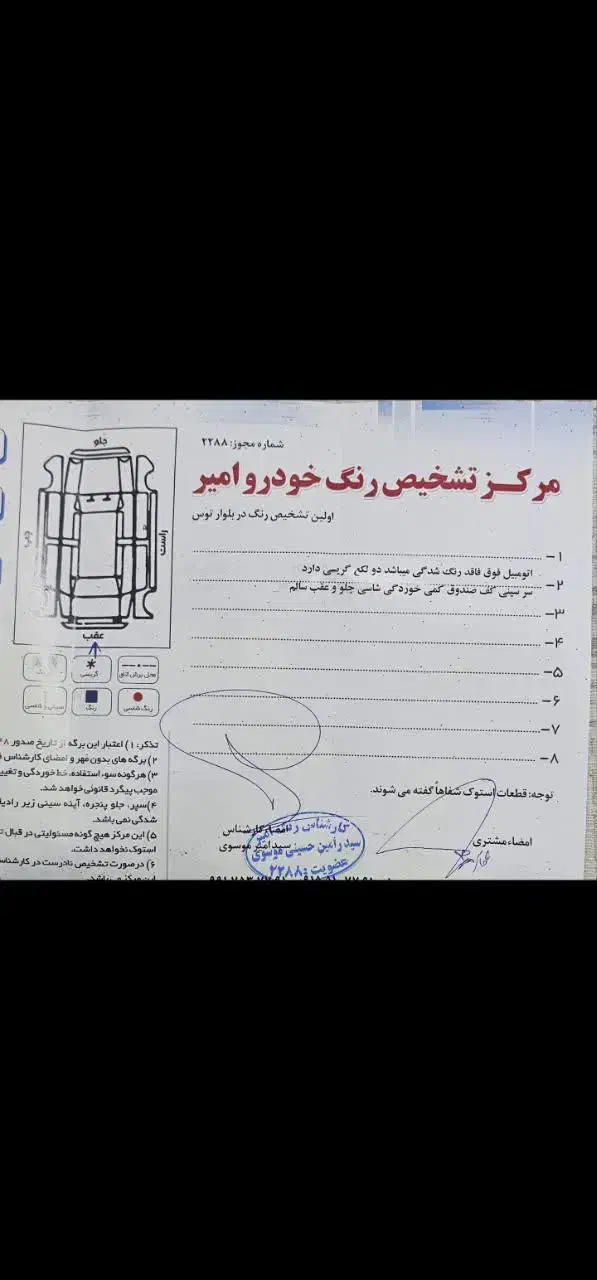 شماره مجوز: ۲۲۸۸
مرکز تشخیص رنگ خودرو امیر
اولین تشخیص رنگ در بلوار توس
۱-
اتومبیل فوق فاقد رنگ شدگی میباشد دو لکع گریسی دارد
۲-
سر سینی کف صندوق کمی خوردگی شاسی جلو و عقب سالم
۳-
۴-
۵-
۶-
۷-
۸-
توجه: قطعات استوک شفاهاً گفته می شوند.
امضاء مشتری
امضاء کارشناس
سید امیر موسوی
کارشناس رنگ امیر
سید رامین حسینی موسوی
عضویت: ۲۲۸۸
جلو
راست
چپ
عقب
محل برش اتاق
گریسی
رنگ شاسی
رنگ
تذکر: ۱) اعتبار این برگه از تاریخ صدور ۴۸
۲) برگه های بدون مهر و امضای کارشناس
۳) هرگونه سوء استفاده، خط خوردگی و تغییر
موجب پیگرد قانونی خواهد شد.
۴) سپر، جلو پنجره، آینه سینی زیر رادیا
شدگی نمی باشد.
۵) این مرکز هیچ گونه مسئولیتی در قبال
استوک نخواهد داشت.
۶) در صورت تشخیص نادرست در کارشناس